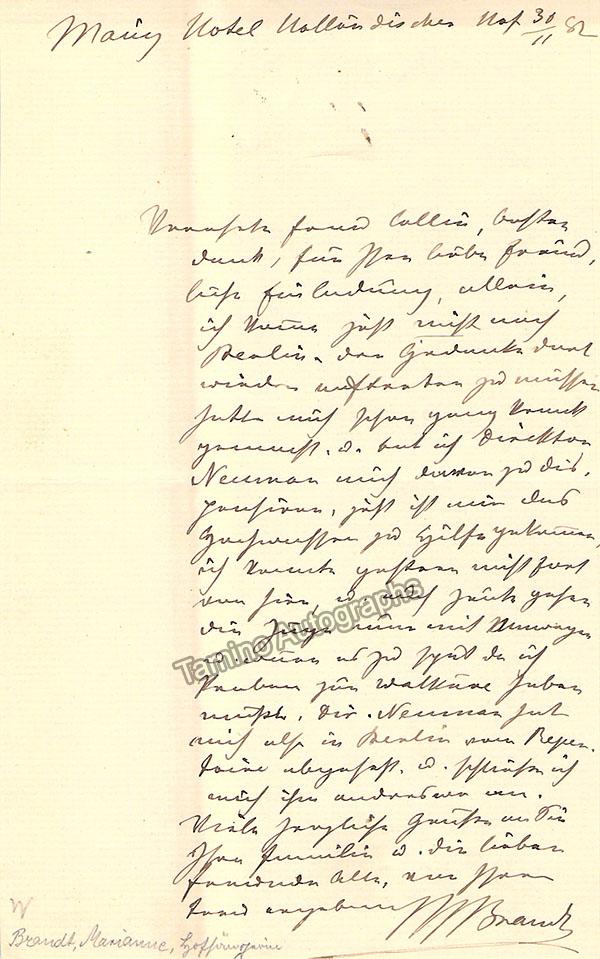 Mainz Hotel Holländischer Hof 30/11 82
Verehrter Freund Collin, besten
Dank, für Ihre liebe freund,
liche Einladung, allein,
ich komme jetzt nicht nach
Berlin. der Gedanke dort
wieder auftreten zu müssen
hatte mich schon ganz krank
gemacht. u. bat ich Direktor
Neuman mich davon zu dis,
pensiren, jetzt ist mir das
Hochwasser zu Hülfe gekommen,
ich konnte gestern nicht fort
von hier, u. auch heute gehen
die Züge nur mit Umwegen
u. wäre es zu spät da ich
Proben zur Walküre haben
müßte. Dir. Neuman hat
mich also in Berlin vom Reper-
toire abgesetzt. u. schließe ich
mich ihm anderswo an.
Viele herzliche Grüße an Sie
Ihre Familie u. die lieben
Freunde Alle, von Ihrer
treu ergebenen MBrandt
Tamino Autographs
Brandt, Marianne, Hofsängerin